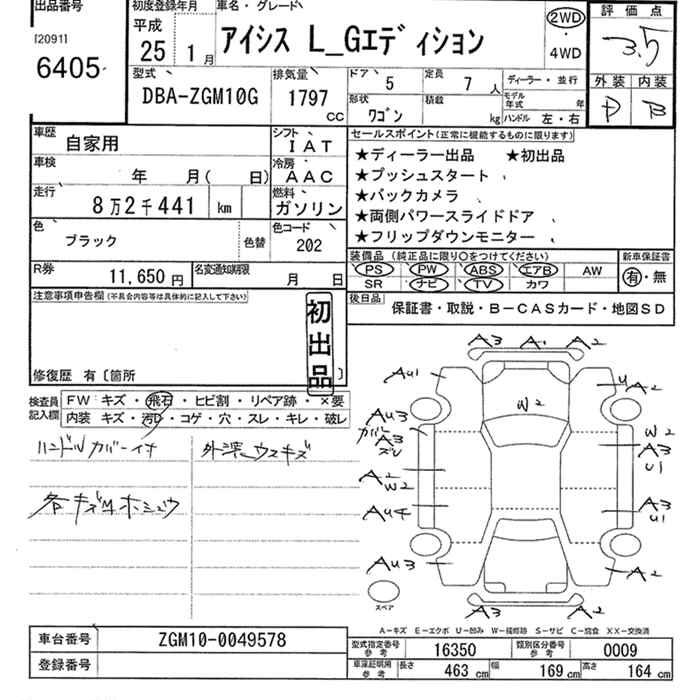 出品番号
[2091]
6405
初度登録年月
平成
25 1月
車名・グレード
アイシス L_Gエディション
2WD
・
4WD
評価点
3.5
外装 内装
D B
型式
DBA-ZGM10G
排気量
1797
CC
ドア 5
定員 7 人
形状 ワゴン
積載 kg
ディーラー・並行
モデル年式 年
ハンドル 左・右
車歴 自家用
シフト IAT
車検 年 月( 日)
冷房 AAC
走行 8万2千441 km
燃料 ガソリン
色 ブラック 色替
色コード 202
R券 11,650円
名変通知期限 月 日
セールスポイント(正常に機能するものに限ります)
★ディーラー出品 ★初出品
★プッシュスタート
★バックカメラ
★両側パワースライドドア
★フリップダウンモニター
装備品 (純正品に限り○をつけてください)
PS PW ABS エアB AW
SR ナビ TV カワ
新車保証書
有・無
後日品 保証書・取説・B-CASカード・地図SD
注意事項申告欄(不具合内容等は具体的に記入して下さい)
初出品
修復歴 有〔箇所 〕
検査員記入欄
FW キズ・飛石・ヒビ割・リペア跡・×要
内装 キズ・汚れ・コゲ・穴・スレ・キレ・破レ
ハンドルカバーイナ
外装ウスキズ
各キズ
A3 A1 A2
AU1 U A2
W2
AU3
カバー A3
W2
A3
U1
A2
W2
AU4
A3
U1
AU3 A2
スペア
A3 A2
A-キズ E-エクボ U-凹み W-補修跡 S-サビ C-腐食 XX-交換済
車台番号 ZGM10-0049578
登録番号
型式指定番号参考 16350
類別区分番号参考 0009
車庫証明用参考 長さ 463 cm 幅 169 cm 高さ 164 cm